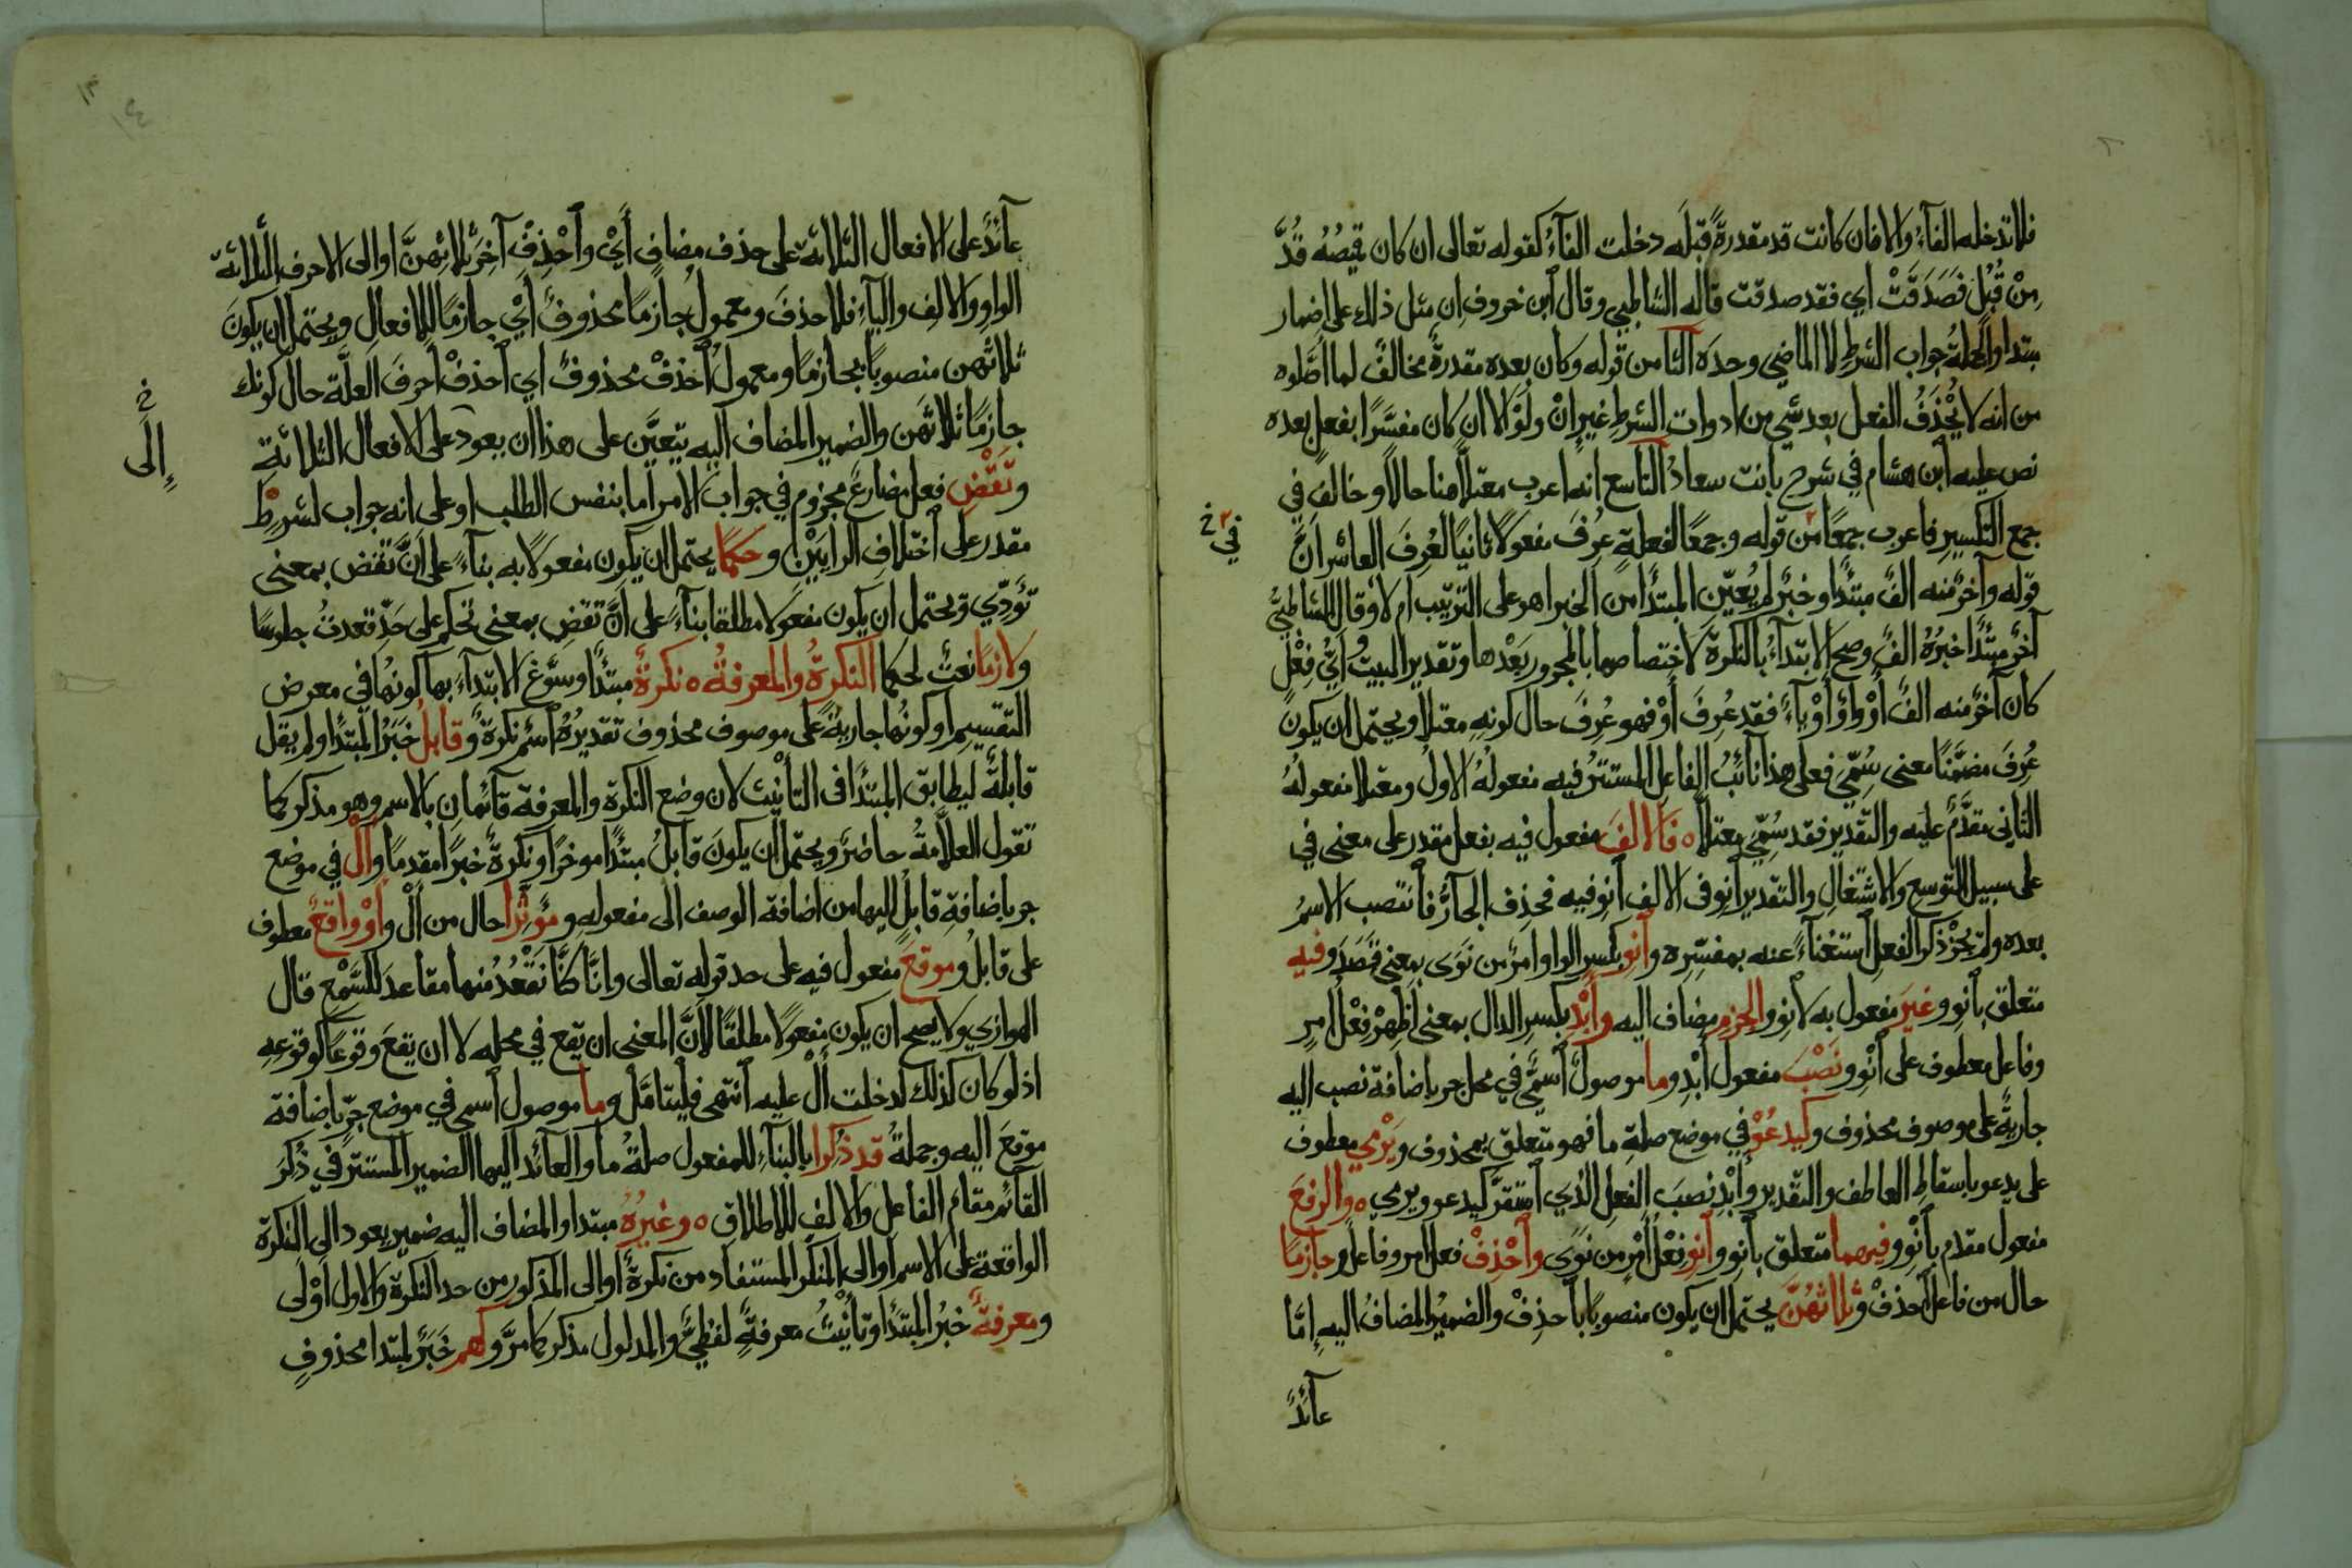 فلا تدخله الفاءُ والا فان كانت قد مقدرةً قبلَه دخلت الفاءُ كقوله تعالى ان كان قميصُهُ قُدَّ
مِنْ قُبُلٍ فَصَدَقَتْ اي فقد صدقت قاله الشاطبي وقال ابن خروف ان مثل ذلك على اضمار
مبتدا والجملةُ جواب الشرطِ لا الماضي وحدَه الثامن قوله وكان بعده مقدرةً مخالفٌ لما اصَّلوه
من انه لا يُحْذَفُ الفعل بعد شيء من ادوات الشرطِ غيرِ انْ ولَوْ الا ان كان مفسَّرًا بفعلٍ بعده
نص عليه ابن هشام في شرح بانت سعادُ التاسع انه اعرب معتلاً هنا حالاً وخالفَ في
جمع التكسيرِ فاعرب جمعًا من قوله وجمعًا لفعلةٍ عُرِفَ مفعولاً ثانيًا لعُرِفَ العاشر انَّ
في
قوله وآخرٌ منه الفٌ مبتدأ وخبرٌ لم يُعيِّن المبتدأ من الخبر اهو على الترتيب ام لا وقال الشاطبيّ
آخرٌ مبتدأ خبرُهُ الفٌ وصح الابتداءُ بالنكرة لاختصاصها بالمجرور بَعْدها وتقدير البيت ايُّ فِعْلٍ
كان آخرٌ منه الفٌ أوْ واوٌ أوْ ياءٌ فقد عُرِفَ أوْ فهو عُرِفَ حال كونهِ معتلا ويحتمل ان يكون
عُرِفَ مضمَّنًا معنى سُمّيَ فعلى هذا نائبُ الفاعل المستترُ فيه مفعولُهُ الاول ومعتلا مفعولهُ
الثاني مقدَّمٌ عليه والتقدير فقد سُمّيَ معتلاً ه فالالفَ مفعول فيه بفعل مقدر على معنى في
على سبيل التوسع والاشتغالِ والتقدير انوِ في الالف انوِ فيه فحُذِفَ الجارُّ فانتصب الاسمُ
بعده ولم يجُزْ ذكر الفعل استغناءً عنه بمفسّره وانوِ بكسر الواو امرٌ من نَوَى بمعنى قصَدَ وفيه
متعلق بانوِ وغيرَ مفعول به لانوِ والجزمِ مضاف اليه وأَبْدِ بكسر الدال بمعنى أظهِرْ فعْلُ امرٍ
وفاعل معطوف على انْوِ ونَصْبَ مفعول أَبْدِ وما موصولٌ اسميٌّ في محل جر باضافة نصب اليه
جاريةٌ على موصوف محذوف وكيدعُوْ في موضع صلةِ ما فهو متعلق بمحذوف ويَرْمي معطوف
على يدعو باسقاط العاطف والتقدير وأَبْدِ نصبَ الفعل الذي استقرَّ كيدعو ويرمي ه والرفعَ
مفعول مقدم بانْوِ وفيهما متعلق بانوِ وانوِ فعْلُ أمْرٍ من نوَى واحْذِفْ فعل امر وفاعل وجازمًا
حال من فاعل احذفْ وثلاثَهُنَّ يحتمل ان يكون منصوبًا باحذِفْ والضميرُ المضافُ اليهِ إمّا
عائدٌ
عائدٌ على الافعال الثلاثة على حذف مضاف أيْ واحْذِفْ آخِرَ ثلاثِهنَّ او الى الاحرف الثلاثة
الواوِ والالِف والياءِ فلا حذفَ ومعمولُ جازمًا محذوفٌ أيْ جازمًا للافعال ويحتمل ان يكونَ
ثلاثَهن منصوبًا بجازمًا ومعمولُ احْذفْ محذوفٌ اي احذفْ أحرفَ العلَّة حال كونك
جازمًا ثلاثَهن والضمير المضاف اليه يتعيَّن على هذا ان يعود على الافعال الثلاثة
إلى
وتَقْضِ فعل مضارعٌ مجزوم في جواب الامر اما بنفس الطلب او على انه جواب لشرطٍ
مقدر على اختلافِ الرايَيْن وحكمًا يحتمل ان يكون مفعولاً به بناءً على أنَّ تقض بمعنى
تؤدّي ويحتمل ان يكون مفعولا مطلقا بناءً على انَّ تقضِ بمعنى تحكم على حدّ قعدتُ جلوسًا
ولازمًا نعتٌ لحكما النكرةُ والمعرفةُ ه نكرةٌ مبتدأ وسوَّغ الابتداءَ بها كونُها في معرض
التقسيم او كونُها جاريةً على موصوف محذوف تقديرُهُ اسم نكرةٌ وقابلُ خبَرُ المبتدأ ولم يقل
قابلةٌ ليطابق المبتدأ في التأنيث لان وضع النكرة والمعرفة قائمان بالاسم وهو مذكر كما
تقول العلاَّمةُ حاضرٌ ويحتمل ان يكونَ قابلُ مبتدأ موخرًا ونكرةٌ خبرًا مقدمًا وال في موضع
جر باضافةِ قابلُ اليها من اضافة الوصف الى مفعوله ومؤثِّرا حال من ألْ وأوْ واقعٌ معطوف
على قابلُ وموقعَ مفعول فيه على حد قوله تعالى وانَّا كنَّا نَقْعُدُ منها مقاعدَ للسَّمْع قال
الهواري ولا يصح ان يكون مفعولا مطلقًا لانَّ المعنى ان يقع في محله لا ان يقعَ وقوعًا كوقوعِهِ
اذ لو كان كذلك لدخلت ألْ عليه انتهى فليتامَّل وما موصول اسمي في موضع جرّ باضافة
موقعَ اليه وجملةُ قد ذُكِرا بالبناءِ للمفعول صلةُ ما والعائد اليها الضمير المستتر في ذُكرَ
القائم مقام الفاعل والالف للاطلاق ه وغيرُهُ مبتدا والمضاف اليه ضمير يعود الى النكرة
الواقعة على الاسم او الى المنكر المستفاد من نكرةٌ او الى المذكور من حد النكرة والاول أوْلى
ومعرفةٌ خبرُ المبتدأ وتأنيثُ معرفةٌ لفظيٌّ والمدلول مذكر كما مرَّ وكهم خَبَرٌ لمبتدا محذوفٍ